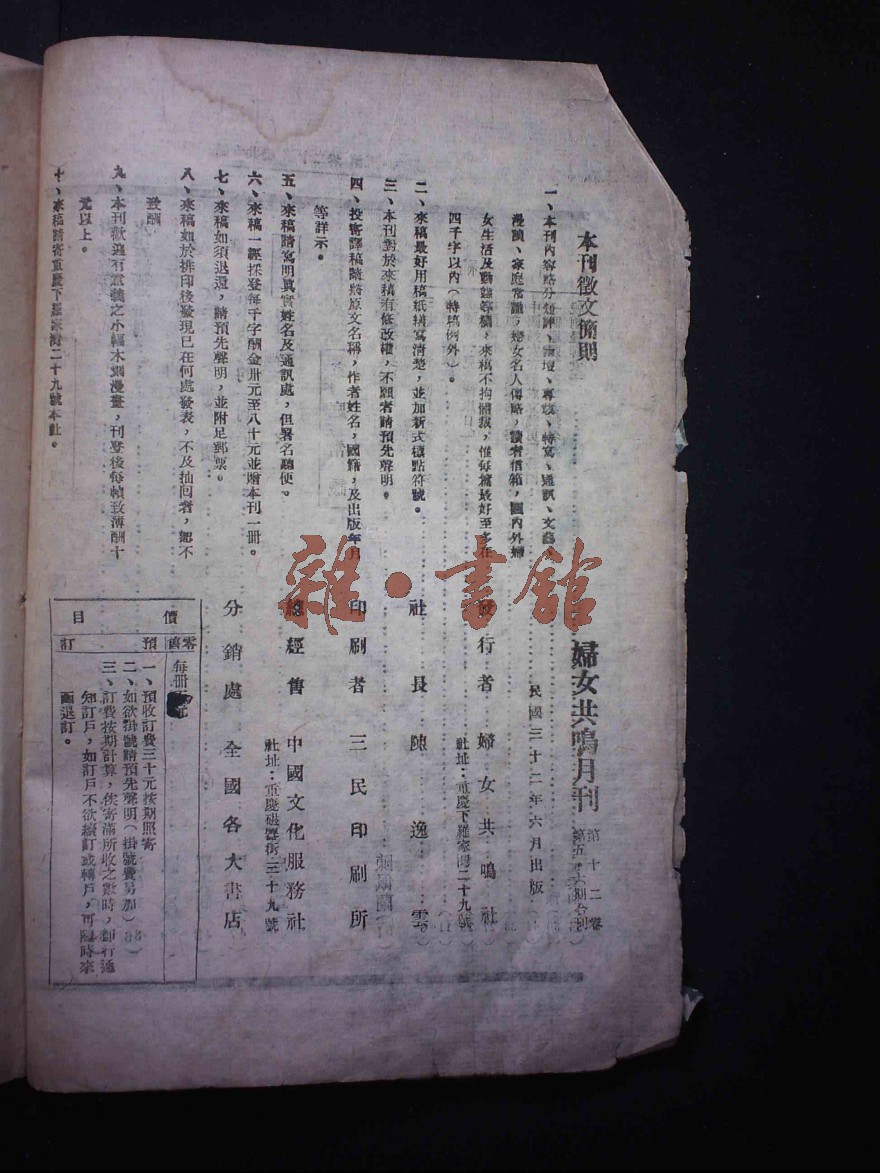 本刊徵文簡則
一、本刊內容略分短評、論壇、專載、特寫、通訊、文藝、
漫談、家庭常識、婦女名人傳略，讀者信箱，國內外婦
女生活及動態等欄，來稿不拘體裁，惟每篇最好至多在
四千字以內（特稿例外）。
二、來稿最好用稿紙繕寫清楚，並加新式標點符號。
三、本刊對於來稿有修改權，不願者請預先聲明。
四、投寄譯稿請將原文名稱，作者姓名，國籍，及出版年月
等詳示。
五、來稿請寫明眞實姓名及通訊處，但署名聽便。
六、來稿一經採登每千字酬金卅元至八十元並贈本刊一冊。
七、來稿如須退還，請預先聲明，並附足郵票。
八、來稿如於排印後發現已在何處發表，不及抽回者，恕不
致酬
九、本刊歡迎有意義之小幅木刻漫畫，刊登後每幀致薄酬十
元以上。
十、來稿請寄重慶下羅家灣二十九號本社。
婦女共鳴月刊
第十二卷
第五六期合刊
民國三十二年六月出版
發行者 婦女共鳴社
社址：重慶下羅家灣二十九號
社長 陳逸雲
印刷者 三民印刷所
總經售 中國文化服務社
社址：重慶磁器街三十九號
分銷處 全國各大書店
價目
零售 每冊 元
預訂
一、預收訂費三十元按期照寄
二、如欲掛號請預先聲明（掛號費另加）
三、訂費按期計算，俟寄滿所收之數時，卽行通
知訂戶，如訂戶不欲續訂或轉戶，可隨時來
函退訂。
雜·書館